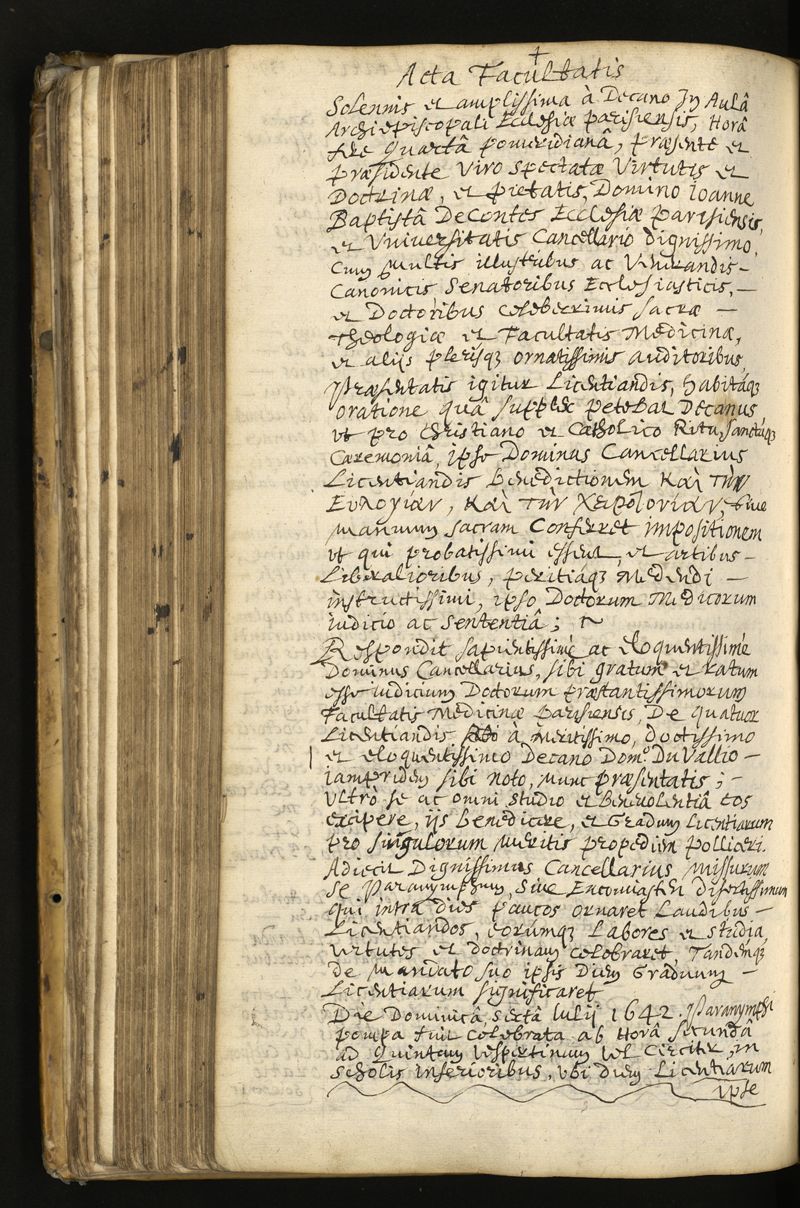 +
Acta Facultatis
Solennis et amplissima à Decano In Aulâ
Archiepiscopali Ecclesiæ parisiensis, Horâ
fere Quartâ pomeridianâ, præsente et
præsidente Viro spectatæ Virtutis et
Doctrinæ, et pietatis, Domino Ioanne
Baptistâ DeContes Ecclesiæ Parisiensis,
et Vniversitatis Cancellario dignissimo,
Cum Multis illustribus ac Venerandis –
Canonicis Senatoribus Ecclesiasticis, –
et Doctoribus celeberrimis sacræ –
Theologiæ et Facultatis Medicinæ,
et alijs plerisq; ornatissimis auditoribus,
Præsentatis igitur Licentiandis, habitáq;
oratione quâ supplex petebat Decanus,
vt pro Christiano et Catholico Ritu, sanctáq;
Cæremoniâ, ipse Dominus Cancellarius
Licentiandis Benedictionem καὶ τὴν
Ευλογίαν, καὶ τὴν χειροτονίαν, sive
manuum sacram Conferret impositionem
vt qui probatissimi essent, et artibus –
Liberalioribus, peritiáq; Medendi –
instructissimi, ipso Doctorum Medicorum
iudicio ac sententiâ;
Respondit sapientissimè ac eloquentissimè
Dominus Cancellarius, sibi gratum et ratum
esse iudicium Doctorum præstantissimorum
Facultatis Medicinæ Parisiensis, De quatuor
Licentiandis à meritissimo, doctissimo
et eloquentissimo Decano Dom.o Du Vallio –
iampridem sibi noto, nunc præsentatis; –
Vltrò se ac omni studio et Benevolentiâ eos
excipere, ijs benedicere, et Gradum Licentiarum
pro singulorum meritis propediem polliceri.
Adiecit Dignissimus Cancellarius missurum
se Paranymphum, sive Encomiasten disertissimum
qui intra dies paucos ornaret Laudibus –
Licentiandos, eorumq; Labores et studia,
virtutes et doctrinam celebraret, Tandemq;
de mandato suo ipsis Diem Graduum –
Licentiarum significaret
Die Dominicâ sextâ Iulij 1642. Paranymphi
pompa fuit celebrata ab Horâ secundâ
ad Quintam vespertinam vel Circiter, in
scholis inferioribus, vbi diem Licentiarum
ipse